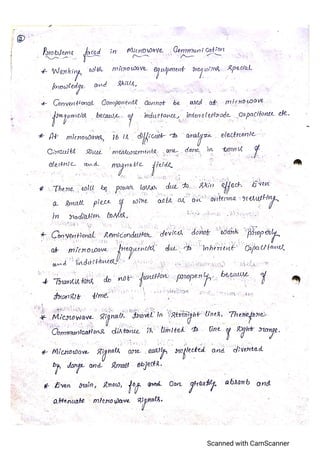 2
Problems faced in Microwave Communication
* Working with microwave equipment requires special
knowledge and skills.
* Conventional Components cannot be used at microwave
frequencies because of inductance, interelectrode capacitance etc.
* At microwaves, it is difficult to analyze electronic
Circuits since measurements are done in terms of
electric and magnetic fields.
* There will be power losses due to skin effect. Even
a small piece of wire acts as an antenna resulting
in radiation losses.
* Conventional semiconductor devices donot work properly
at microwave frequencies due to inherent Capacitances
and inductances
* Transistors do not function properly because of
transit time.
* Microwave signals travel in straight lines. Therefore
Communications distance is limited to line of sight range.
* Microwave signals are easily reflected and diverted
by large and small objects.
* Even rain, snow, fog and can greatly absorb and
attenuate microwave signals.
Scanned with CamScanner